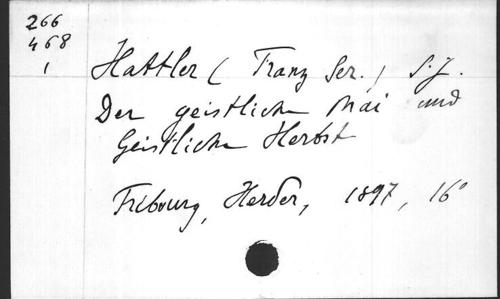 266
468
1
Hattler (Franz Ser.) S.J.
Der geistliche Mai und
Geistliche Herbst
Fribourg, Herder, 1897, 16°